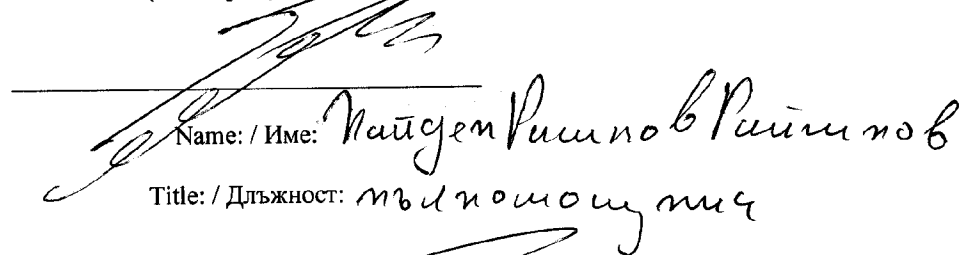 Name: / Име: Найден Рашков Райчинов
Title: / Длъжност: пълномощник